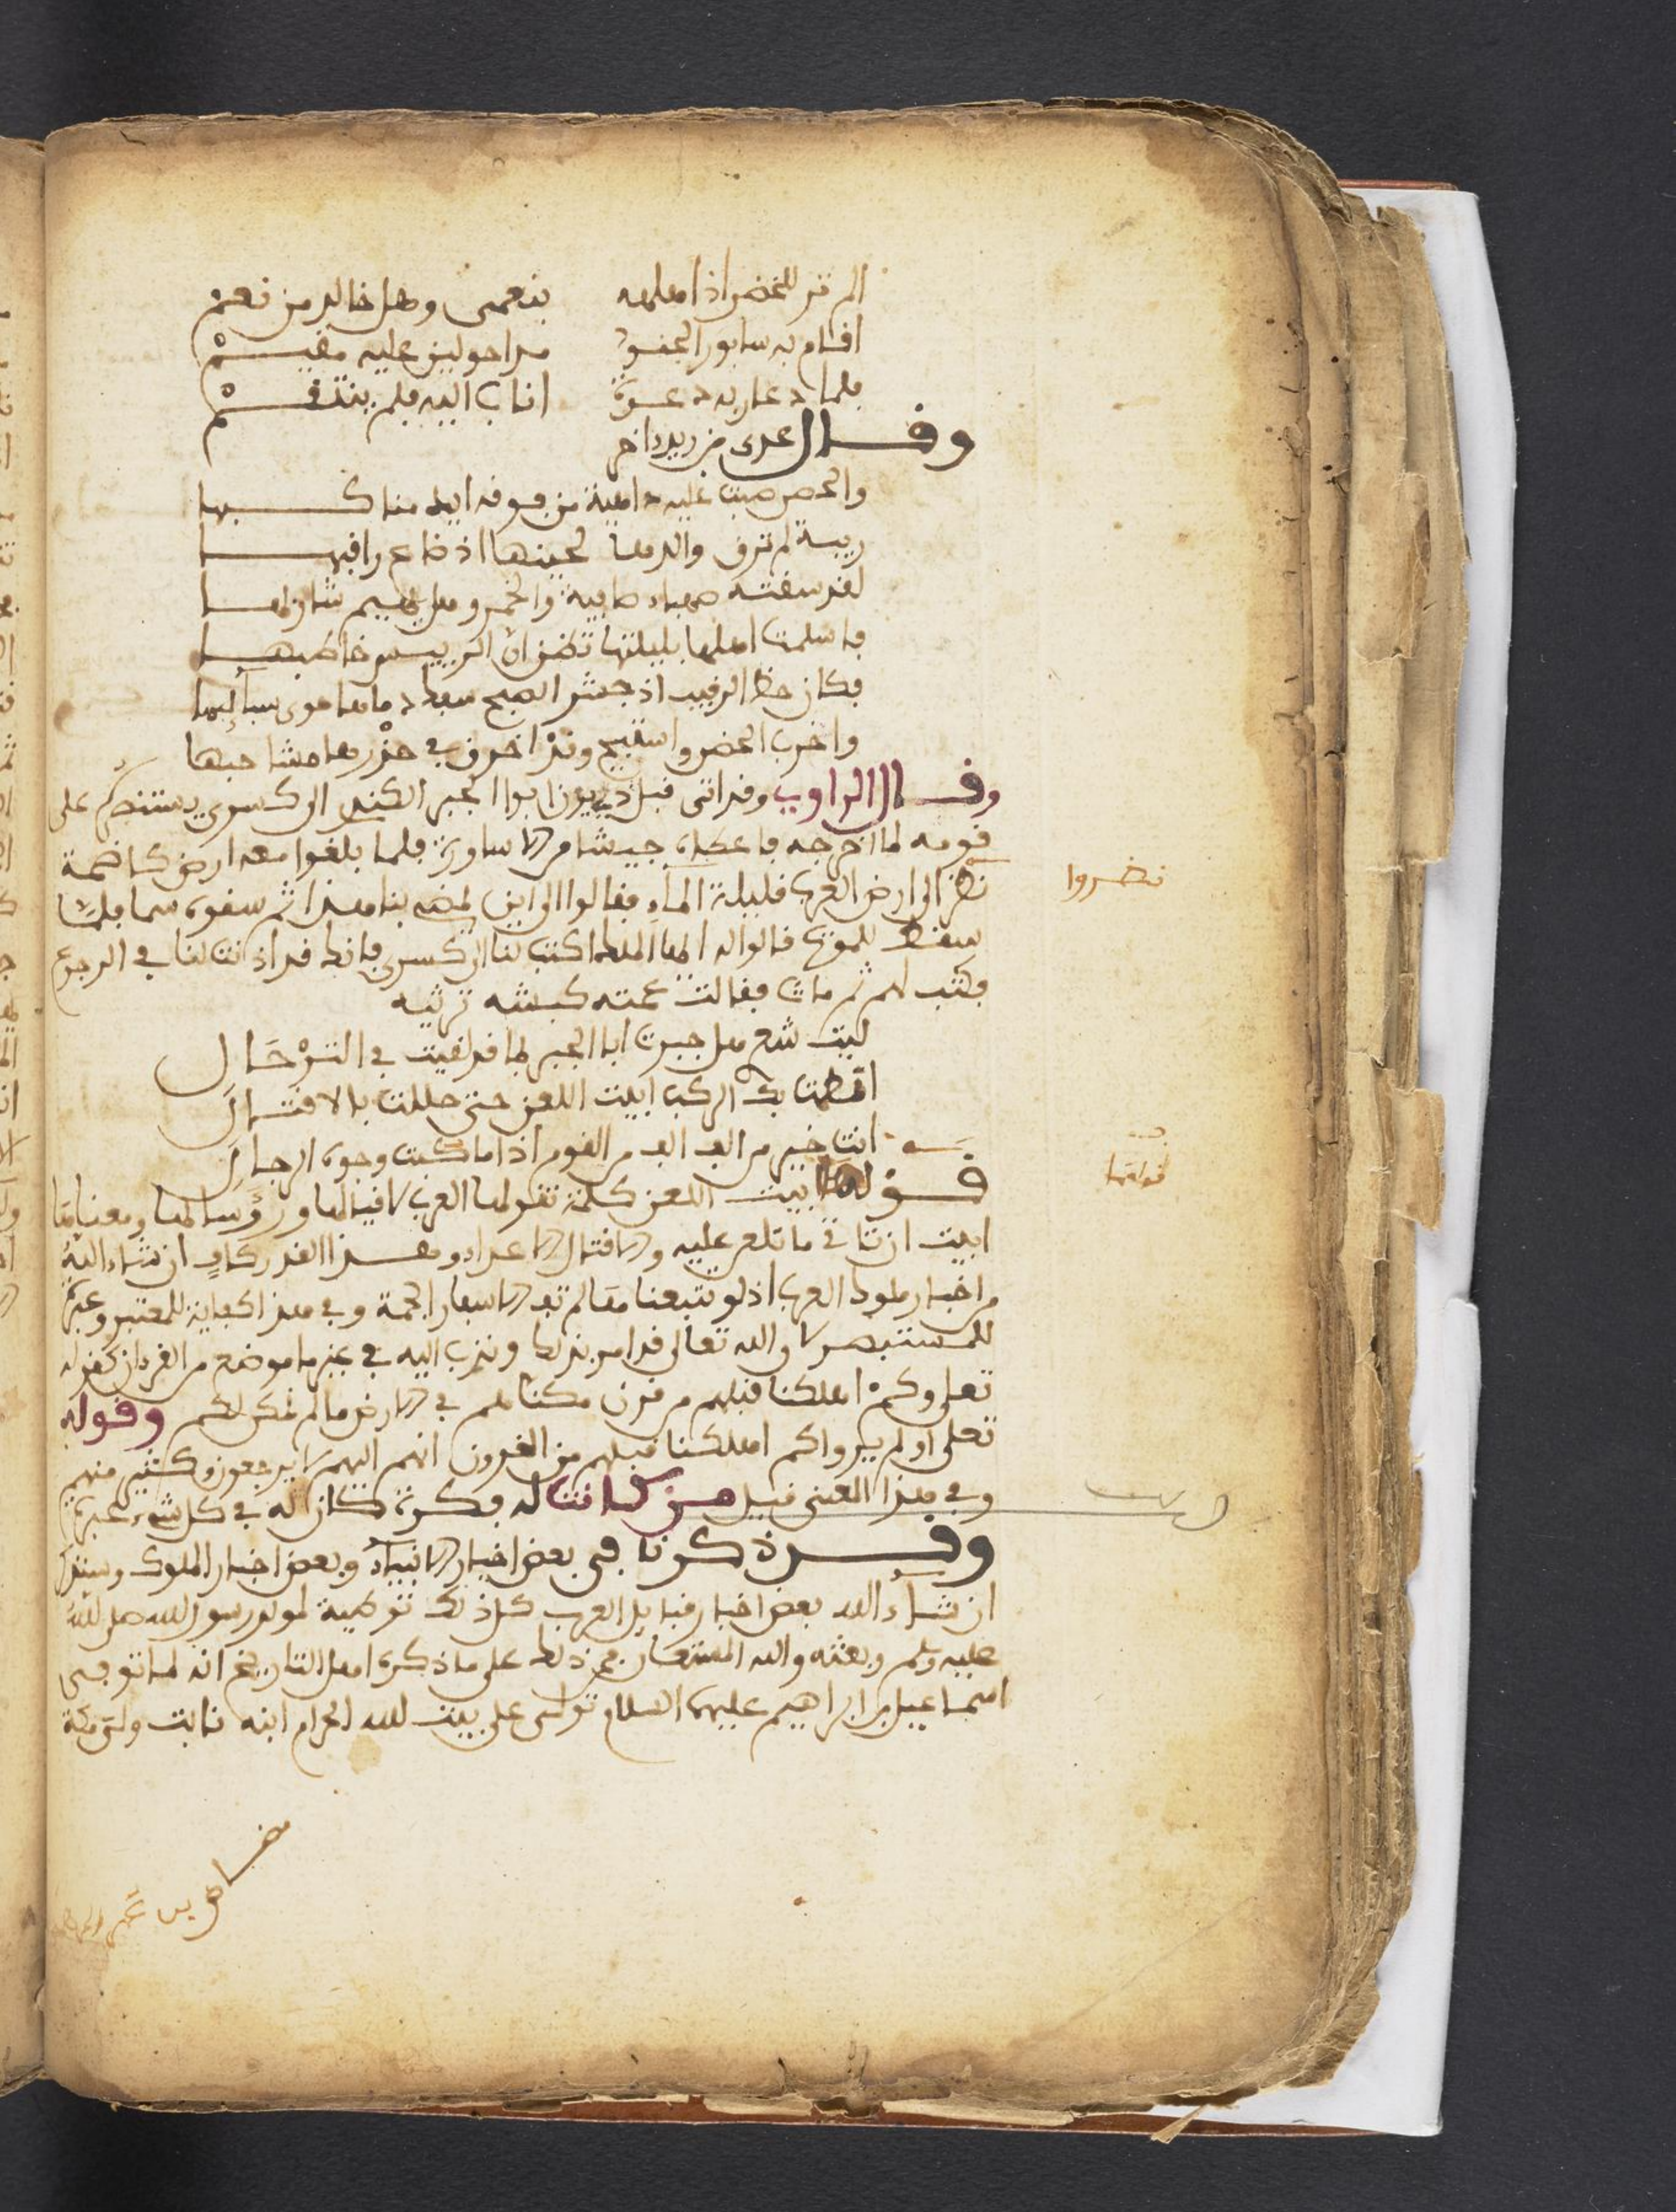 الم تر للحضر اذا اهله بنعمى وهل خالد من نعم
اقام به سابور الجنود حولين عليه
فلما دعا ربه دعوة اناب اليه فلم ينتقم
وقال عدى بن زيد
والحضر صبت عليه داهية من فوقه ايد مناكبها
ريبة لم توق والدها لحينها اذ ضاع راقبها
لقد سقته صهباء صافية والخمر وهل يهيم شاربها
فاسلمت اهلها بليلتها تظن ان الرييس خاطبها
فكان حظ اذ جشر الصبح دماها سبائبها
واخرب الحضر واستبيح وقد احرق في خدرها مشاجبها
وقال الراوي وقد اتى قبل ابوا الجبر الكندي الى كسرى يستنصره على
قومه لما اخرجه فاعطاه جيشا من الاساورة فلما بلغوا معه ارض كاظمة
نظر الى ارض العرب قليلة الماء فقالوا الى اين بنا هذا ثم سقوه سما فلما
سقط للموت قالوا له ايها الملك اكتب لنا الى كسرى فانك قد اذنت لنا في الرجوع
فكتب لهم ثم مات فقالت عمته كبشه ترثيه
ليت شعر هل جبرت ابا الجبر لما قد لقيت في الترحال
بك الركب ابيت اللعن حتى حللت بالاقتال
انت خير من الف الف من القوم اذا ما كبت وجوه الرجال
قولها ابيت اللعن كلمة تقولها العرب لاقيالها ورؤسائها ومعناها
ابيت ان تاتى ما تلعن عليه والاقتال الاعداء وهذا القدر كاف ان شاء الله
من اخبار ملوك العرب اذ لو تتبعنا لم تف الاسفار الجمة وفي هذا كفاية للمعتبر وعبرة
للمستبصر لان الله تعالى قد امر بذلك وندب اليه في غير ما موضع من القرءان كقوله
تعلى وكم اهلكنا قبلهم من قرن مكناهم في الارض ما لم نمكن لكم وقوله
تعلى اولم يروا كم اهلكنا قبلهم من القرون انهم اليهم لا يرجعون وكثير منهم
وفي هذا المعنى قيل من كانت له فكرة كان له في كل شيء عبرة
وقد ذكرنا في بعض اخبار الانبياء وبعض اخبار الملوك
ان شاء الله بعض اخبار قبايل العرب كل ذلك توطية لمولد رسول الله صلى الله
عليه وسلم وبعثه والله المستعان فمن ذلك على ما ذكره اهل التاريخ انه لما توفى
اسماعيل بن ابراهيم عليهما السلام تولى على بيت الله الحرام ابنه نابت
نظروا
قولها